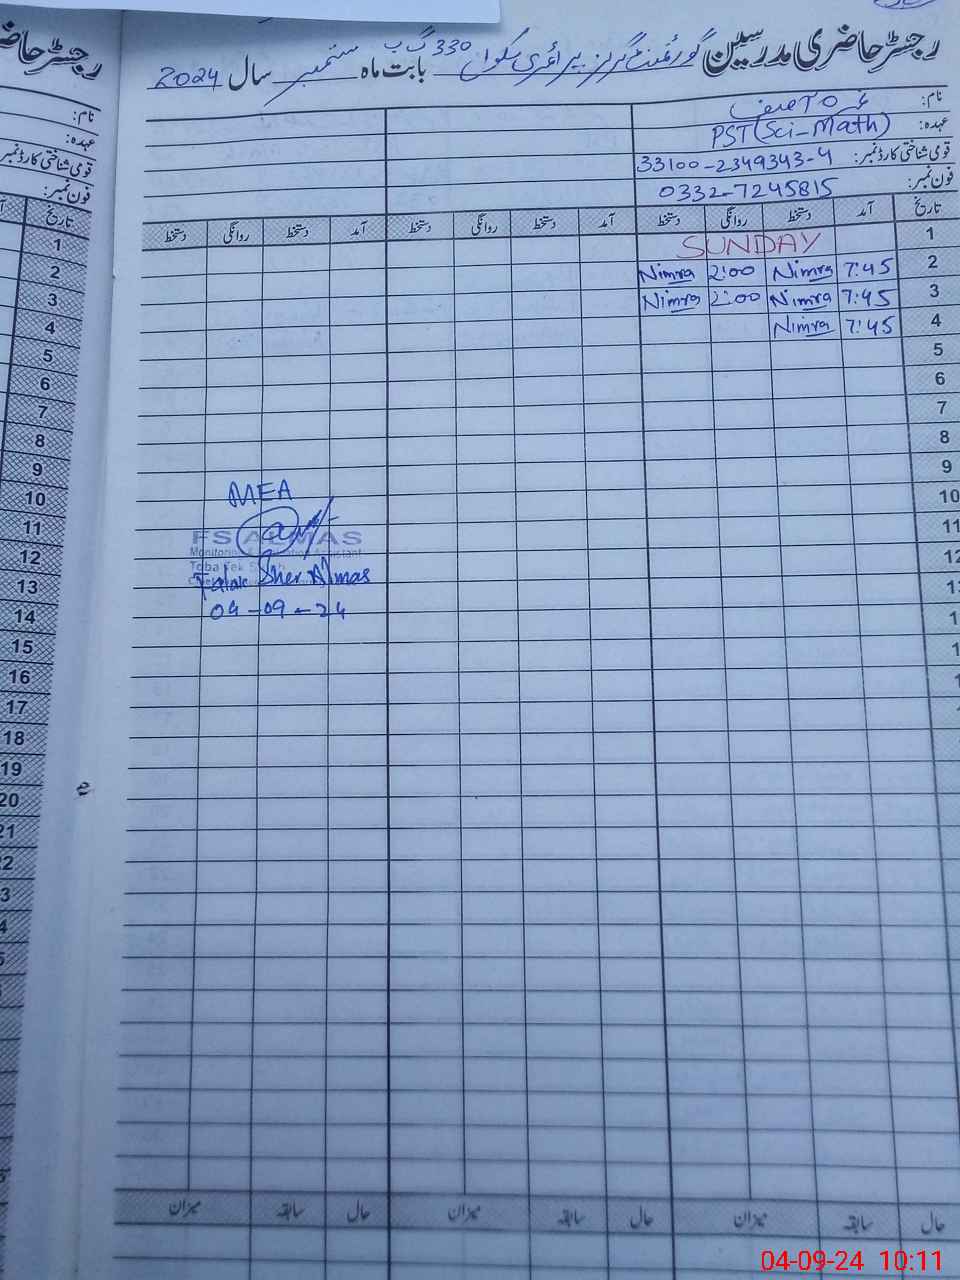 رجسٹر حاضری مدرسین گورنمنٹ گرلز پرائمری سکول 330 گ ب بابت ماہ ستمبر سال 2024
نام:
عہدہ: PST(Sci-Math)
قومی شناختی کارڈ نمبر: 33100-2349343-4
فون نمبر: 0332-7245815
تاریخ آمد دستخط روانگی دستخط آمد دستخط روانگی دستخط آمد دستخط روانگی دستخط
1 SUNDAY
2 7:45 Nimra 2:00 Nimra
3 7:45 Nimra 2:00 Nimra
4 7:45 Nimra
5
6
7
8
9
10
11
12
MEA
FS ALMAS
Monitoring Assistant
Toba Tek
Sher Almas
04-09-24
حال سابقہ میزان حال سابقہ میزان حال سابقہ میزان
رجسٹر حاضری
نام:
عہدہ:
قومی شناختی کارڈ نمبر
فون نمبر:
تاریخ
1
2
3
4
5
6
7
8
9
10
11
12
13
14
15
16
17
18
19
20
04-09-24 10:11